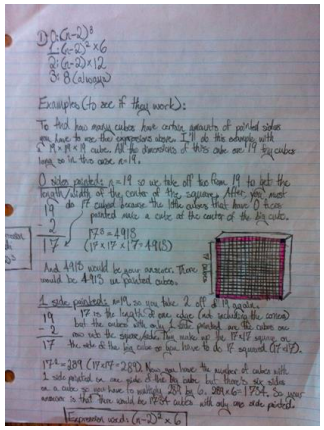 D: 0: (n-2)³
1: (n-2)² × 6
2: (n-2) × 12
3: 8 (always)
Examples (to see if they work):
To find how many cubes have certain amounts of painted sides
you have to use the expressions above. I'll do this example with
a 19 × 19 × 19 cube. All the dimensions of this cube are 19 tiny cubes
long so in this case, n=19.
0 sides painted: n=19 so we take off two from 19 to get the
length/width of the center of the square. After you must
do 17 cubed because the little cubes that have 0 sides
painted make a cube at the center of the big cube.
19
- 2
17
17³ = 4913
(17 × 17 × 17 = 4913)
And 4913 would be your answer. There
would be 4913 un painted cubes.
17 cubes
1 side painted: n=19, so you take 2 off of 19 again.
19
- 2
17
17 is the length of one edge (not including the corners)
but the cubes with only 1 side painted are the cubes
also into the square. They make up the 17×17 square on
the side of the big cube so you have to do 17 squared (17×17).
17² = 289 (17×17=289). Now you have the number of cubes with
1 side painted on one side of the big cube but there's six sides
on a cube so you have to multiply 289 by 6. 289×6=1734. So your
answer is that there would be 1734 cubes with only one side painted.
Expression works (n-2)² × 6